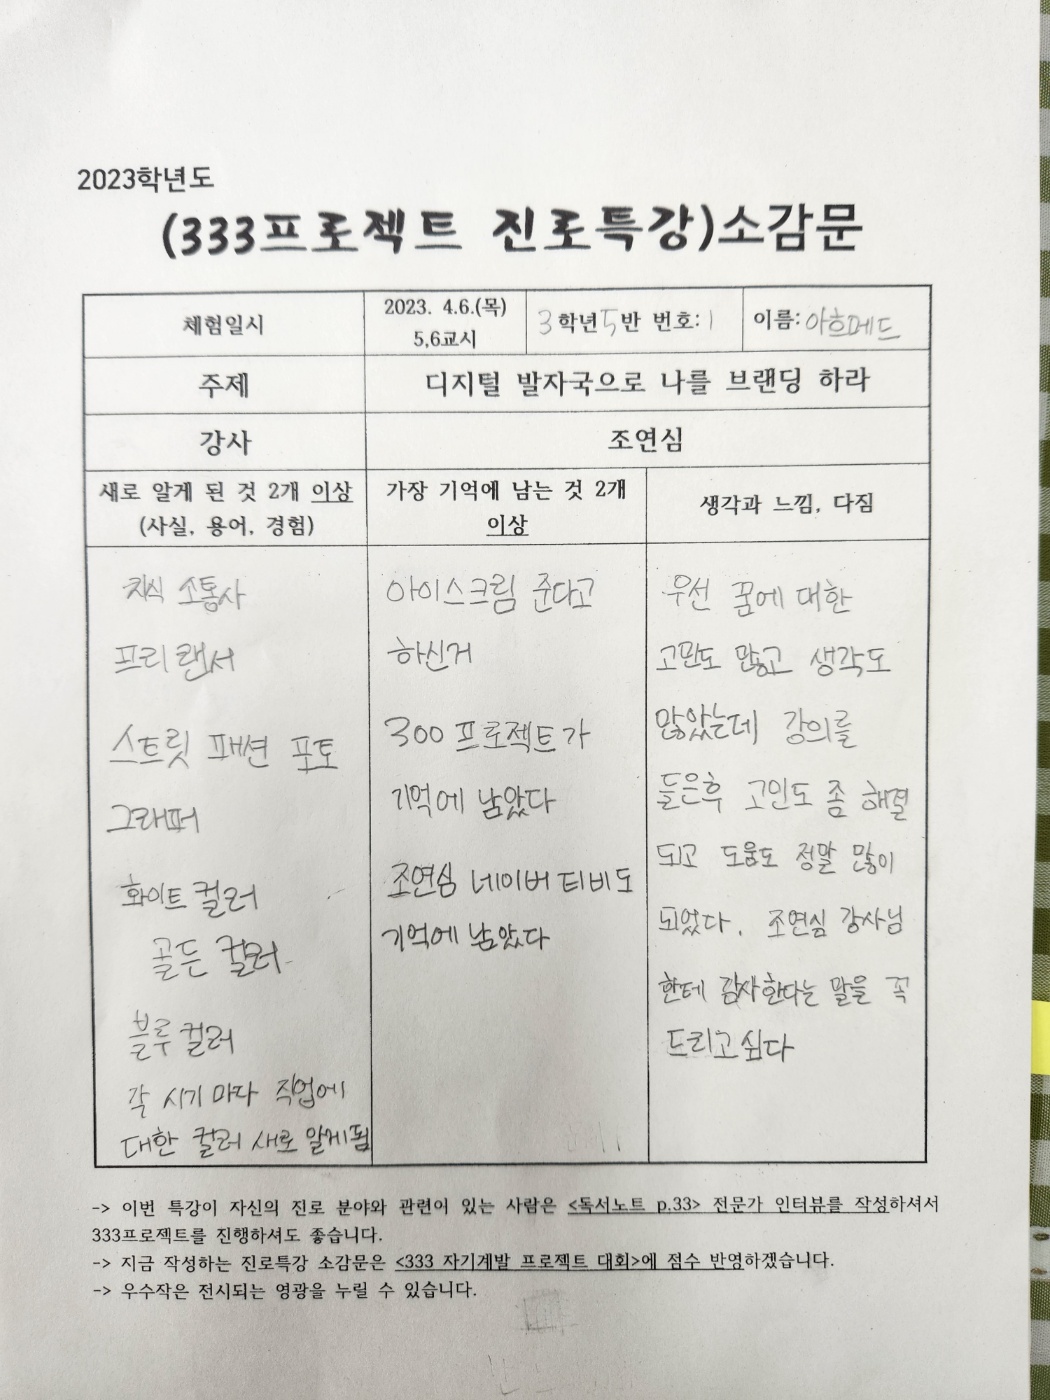 2023학년도
(333프로젝트 진로특강)소감문
체험일시
2023. 4.6.(목)
5,6교시
3학년5반 번호: 1
이름: 아흐메드
주제
디지털 발자국으로 나를 브랜딩 하라
강사
조연심
새로 알게 된 것 2개 이상
(사실, 용어, 경험)
가장 기억에 남는 것 2개
이상
생각과 느낌, 다짐
지식 소통사
프리랜서
스트릿 패션 포토
그래퍼
화이트 컬러
골든 컬러
블루 컬러
각 시기 마다 직업에
대한 컬러 새로 알게됨
아이스크림 준다고
하신거
300 프로젝트가
기억에 남았다
조연심 네이버 티비도
기억에 남았다
우선 꿈에 대한
고민도 많고 생각도
많았는데 강의를
들은후 고민도 좀 해결
되고 도움도 정말 많이
되었다. 조연심 강사님
한테 감사한다는 말을 꼭
드리고싶다
-> 이번 특강이 자신의 진로 분야와 관련이 있는 사람은 <독서노트 p.33> 전문가 인터뷰를 작성하셔서
333프로젝트를 진행하셔도 좋습니다.
-> 지금 작성하는 진로특강 소감문은 <333 자기계발 프로젝트 대회>에 점수 반영하겠습니다.
-> 우수작은 전시되는 영광을 누릴 수 있습니다.